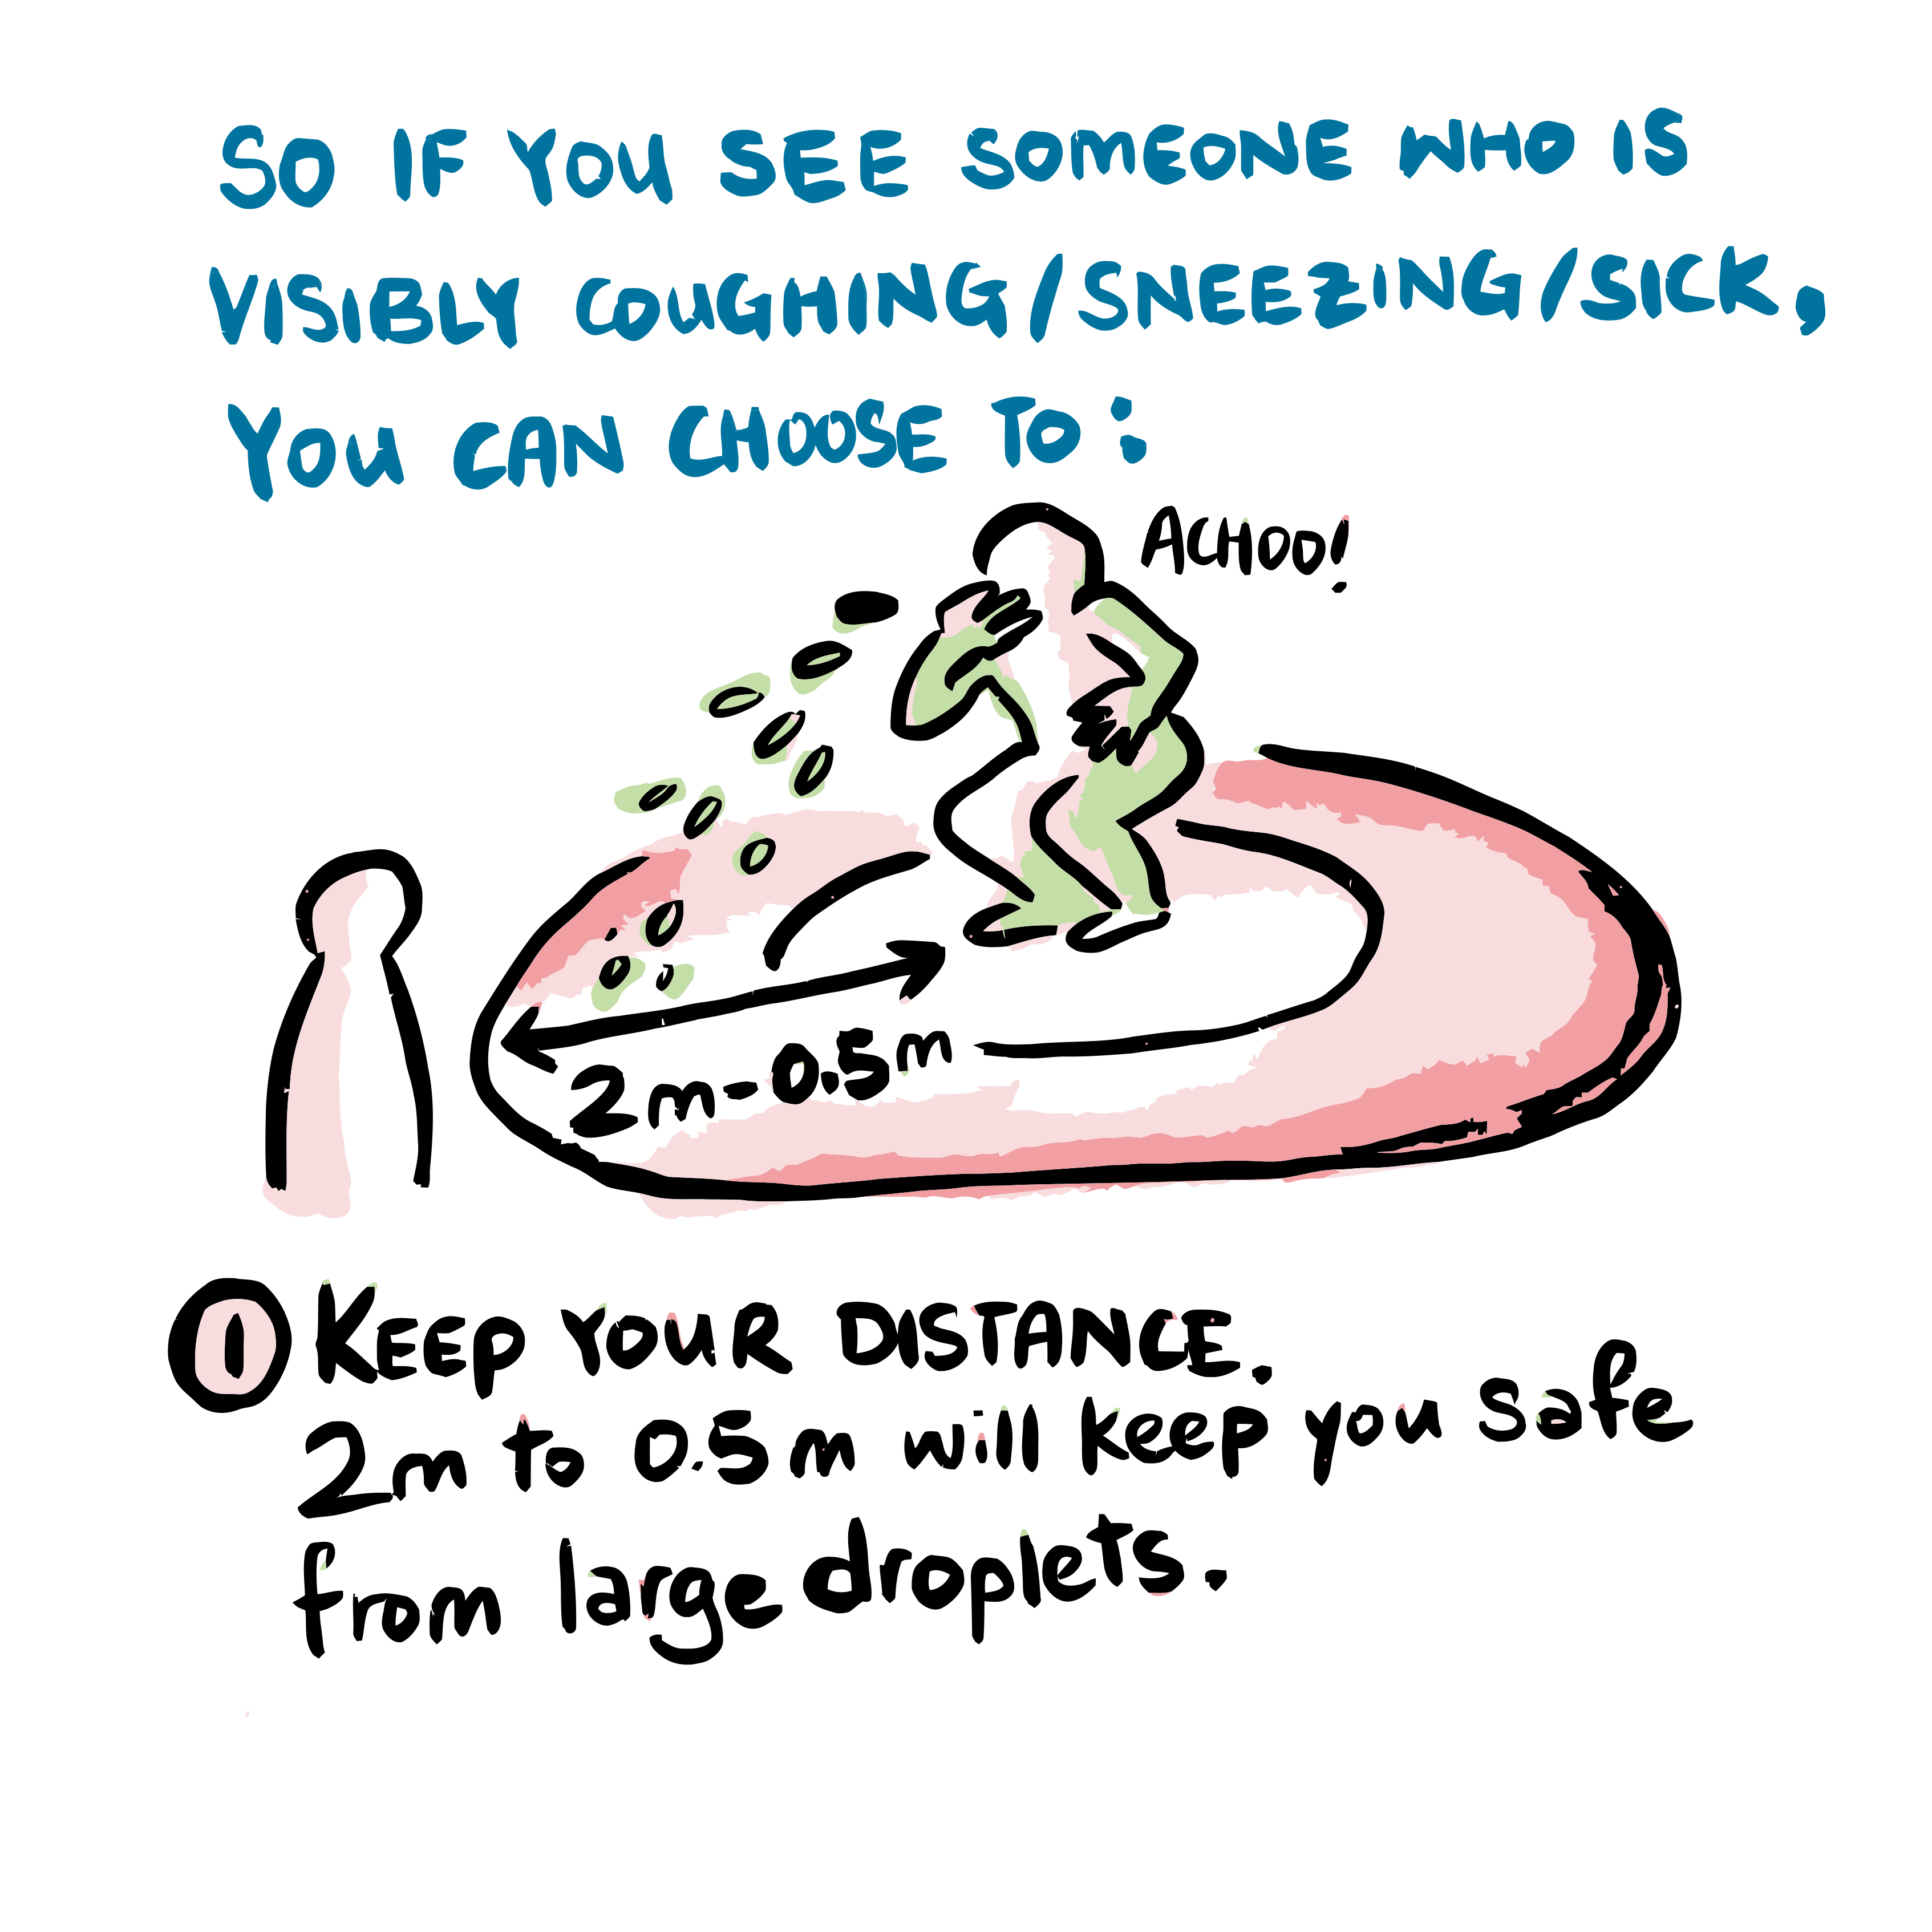 SO IF YOU SEE SOMEONE WHO IS
VISIBLY COUGHING/SNEEZING/SICK,
YOU CAN CHOOSE TO:
ACHOO!
2m-0.5m
1 KEEP YOUR DISTANCE.
2m to 0.5m will keep you safe
from large droplets.